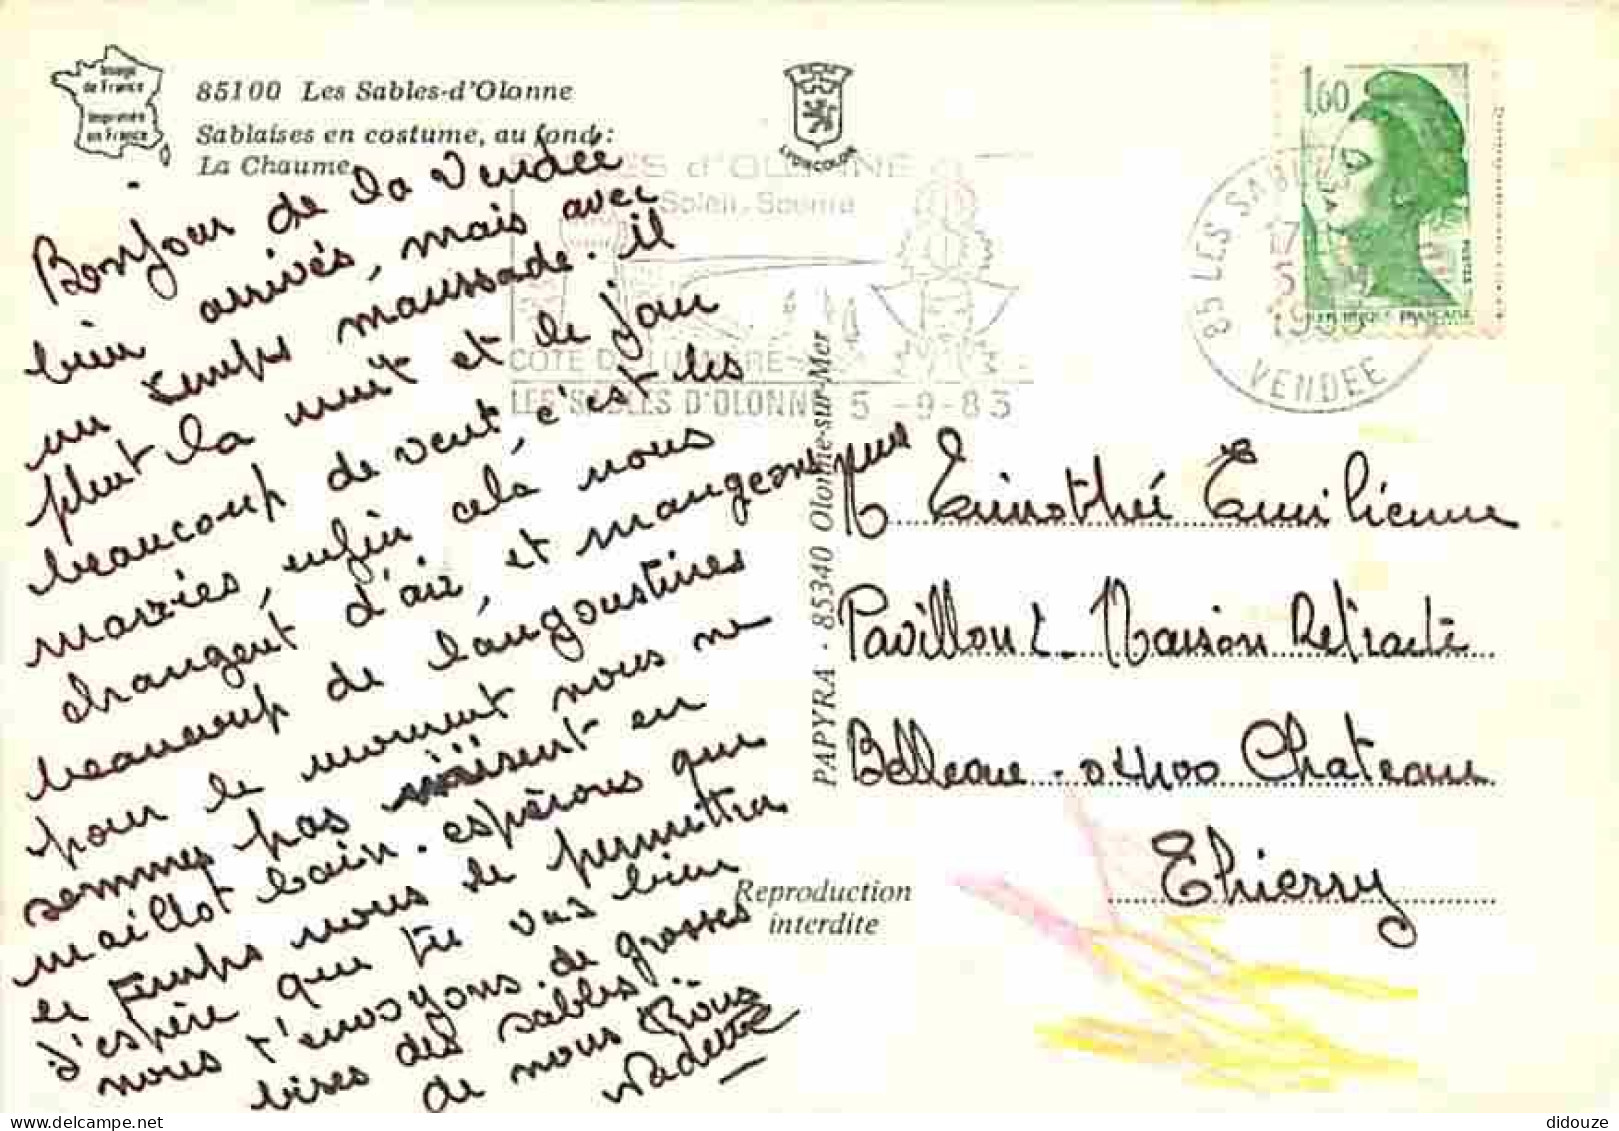 Image
de France
Imprimée
en France
85100 Les Sables-d'Olonne
Sablaises en costume, au fond :
La Chaume.
LYONCOLOR
SABLES d'OLONNE
Soleil, Sourire
COTE DE LUMIERE
LES SABLES D'OLONNE 5 -9-83
1,60
POSTES
REPUBLIQUE FRANÇAISE
85 LES SABLES
17
5
VENDEE
Bonjour de la Vendée
bien arrivés, mais avec
un temps maussade. il
pleut la nuit et le jour
beaucoup de vent, c'est les
marées, enfin cela nous
changent d'air, et mangeons
beaucoup de langoustines
pour le moment nous ne
sommes pas en
maillot bain. espérons que
le temps nous le permettra
J'espère que tu vas bien
nous t'envoyons de grosses
bises des sables.
de nous
Nadette
PAPYRA - 85340 Olonne-sur-Mer
Reproduction
interdite
Timothée Emilienne
Pavillon 2 - Maison Retraite
Belleau - 02400 Chateau
Thierry
didouze